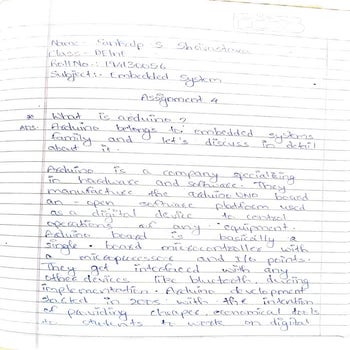 Name:- Sankalp S Shrivastava
Class:- BE
Roll No.:
Subject:- Embedded System
Assignment 4
* What is arduino?
Ans. Arduino belongs to embedded systems
family and let's discuss in detail
about it.
Arduino is a company specializing
in hardware and software. They
manufacture the arduino UNO board
an open software platform used
as a digital device to control
operations of any equipment.
Arduino board is basically a
single board microcontroller with
a microprocessor and I/O points.
They get interfaced with any
other devices like bluetooth during
implementation. Arduino development
started in 2005 with the intention
of providing cheaper, economical tools
to students to work on digital